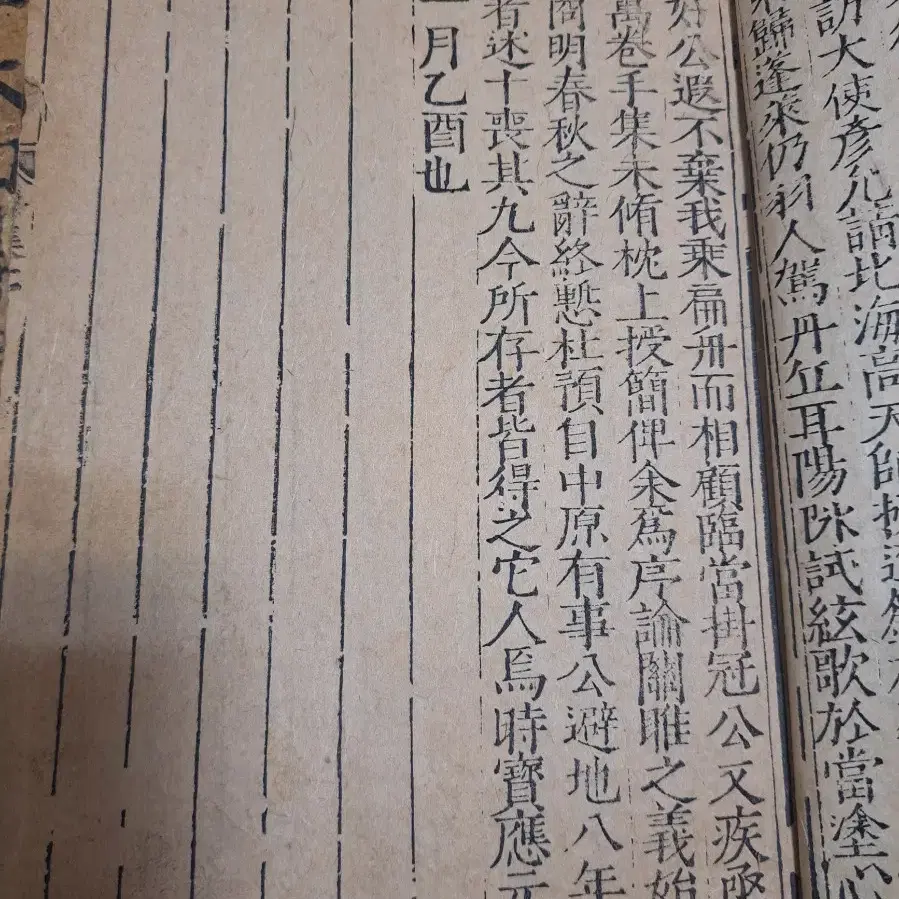 訪大使彥允請北海高天師授道籙
歸蓬萊仍羽人駕丹丘耳陽冰試絃歌於當塗心
好公遐不棄我乘扁舟而相顧臨當掛冠公又疾亟
萬卷手集未脩枕上授簡俾余爲序論關雎之義始
商明春秋之辭終慙杜預自中原有事公避地八年
者述十喪其九今所存者皆得之它人焉時寶應元
一月乙酉也